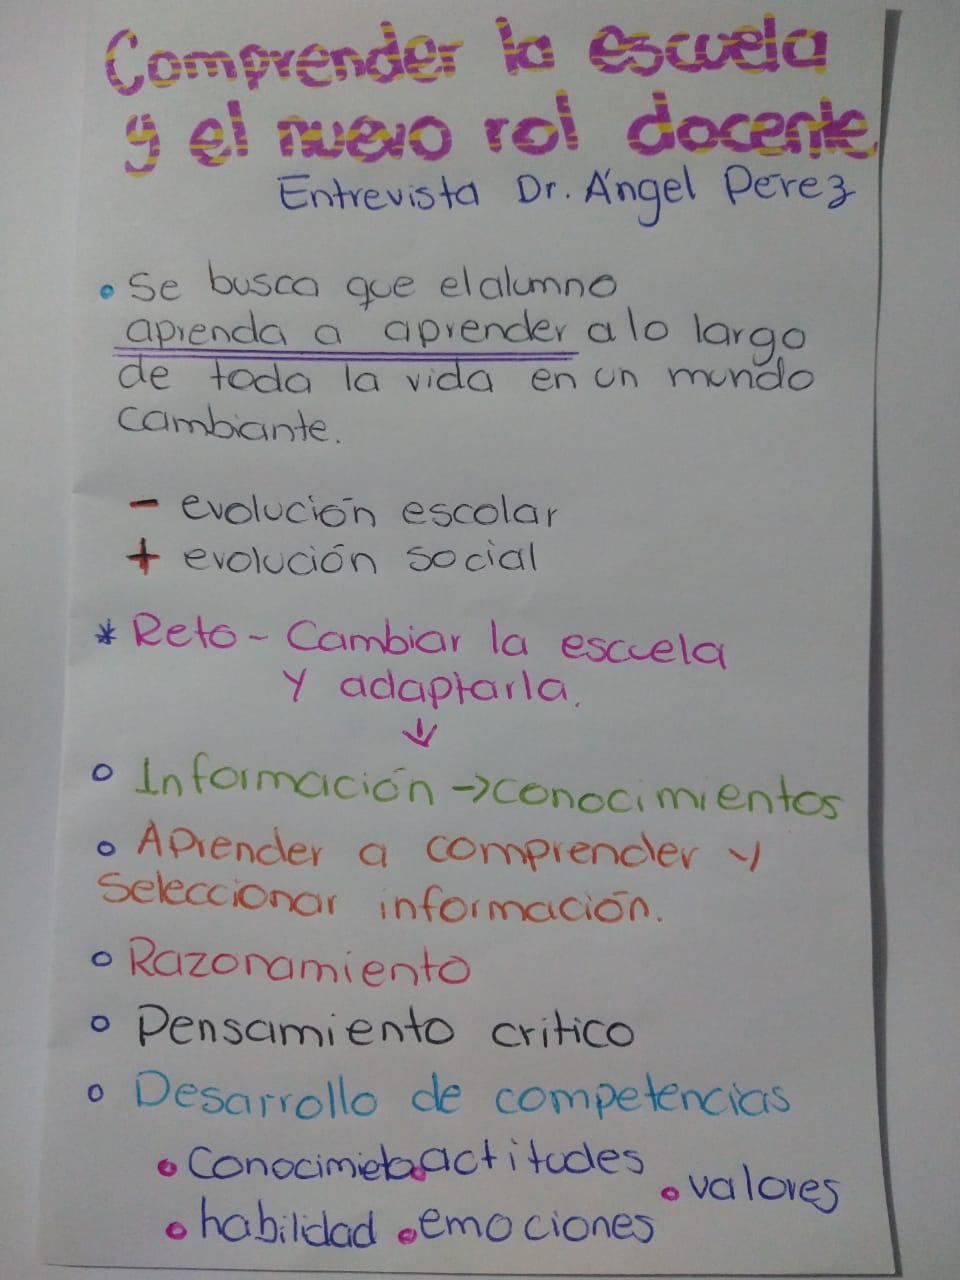 Comprender la escuela
y el nuevo rol docente
Entrevista Dr. Ángel Pérez
• Se busca que el alumno
aprenda a aprender a lo largo
de toda la vida en un mundo
cambiante.
- evolución escolar
+ evolución social
* Reto - Cambiar la escuela
y adaptarla.
↓
○ Información → conocimientos
○ Aprender a comprender y
seleccionar información.
○ Razonamiento
○ Pensamiento critico
○ Desarrollo de competencias
• Conocimieto • actitudes • valores
• habilidad • emociones